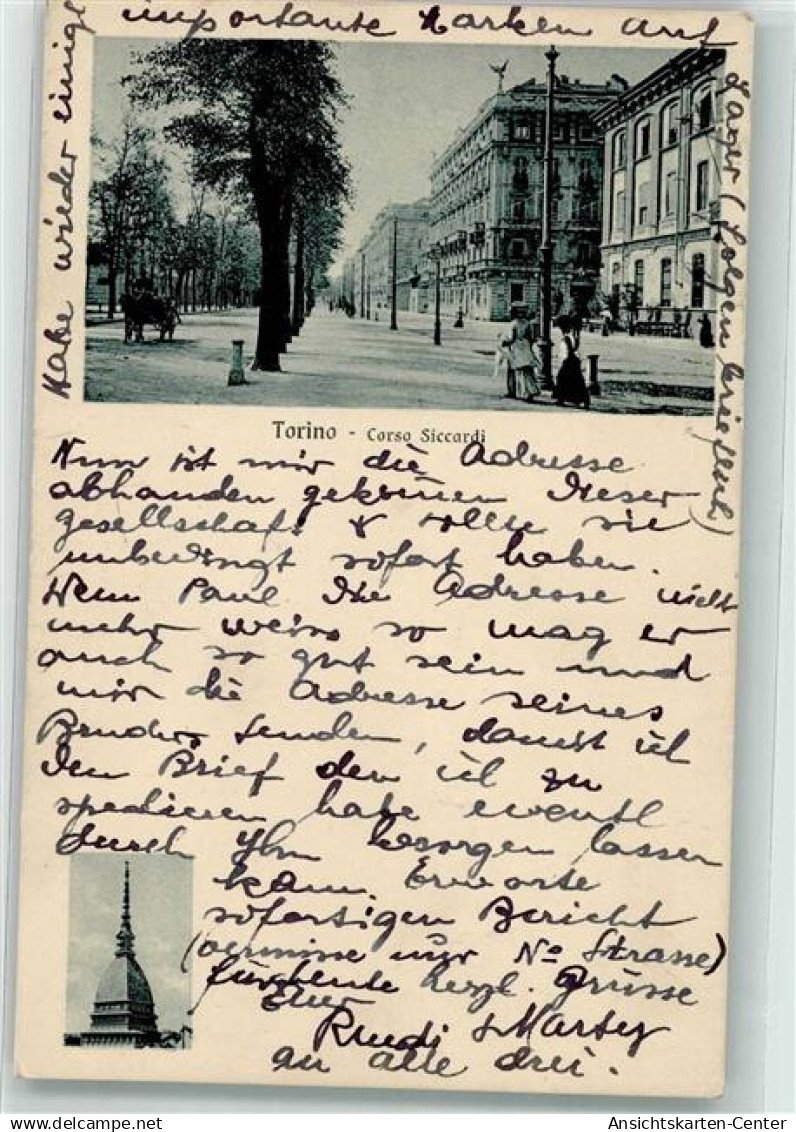 Habe wieder einige
importante Marken auf
Lager (folgen brieflich)
Torino - Corso Siccardi
Nun ist mir die Adresse
abhanden gekommen dieser
gesellschaft & sollte sie
unbedingt sofort haben.
Wenn Paul die Adresse nicht
mehr weiss so mag er
auch so gut sein und
mir die Adresse seines
Bruders senden, damit ich
den Brief den ich zu
spedieren habe eventl
durch Ihn besorgen lassen
kann. Erwarte
sofortigen Bericht
(vermisse nur No Strasse)
herzl. Grüsse
Euer
Rudi &
an alle drei.
Ansichtskarten-Center